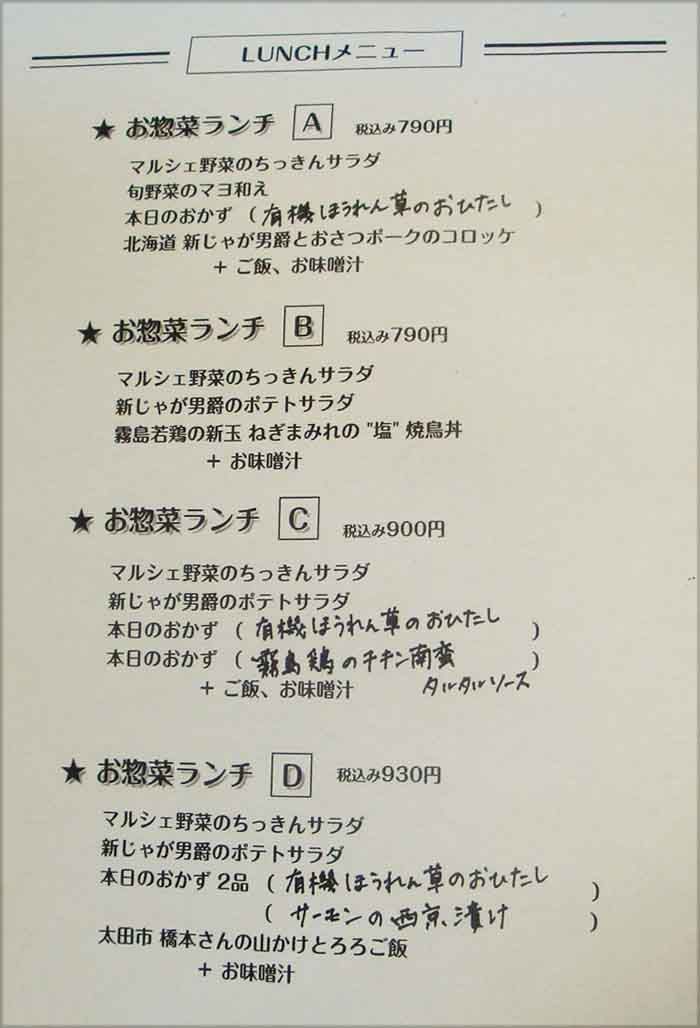 LUNCHメニュー
★ お惣菜ランチ A 税込み790円
マルシェ野菜のちっきんサラダ
旬野菜のマヨ和え
本日のおかず (有機ほうれん草のおひたし)
北海道 新じゃが男爵とおさつポークのコロッケ
+ ご飯、お味噌汁
★ お惣菜ランチ B 税込み790円
マルシェ野菜のちっきんサラダ
新じゃが男爵のポテトサラダ
霧島若鶏の新玉 ねぎまみれの "塩" 焼鳥丼
+ お味噌汁
★ お惣菜ランチ C 税込み900円
マルシェ野菜のちっきんサラダ
新じゃが男爵のポテトサラダ
本日のおかず (有機ほうれん草のおひたし)
本日のおかず (霧島鶏のチキン南蛮)
+ ご飯、お味噌汁 タルタルソース
★ お惣菜ランチ D 税込み930円
マルシェ野菜のちっきんサラダ
新じゃが男爵のポテトサラダ
本日のおかず 2品 (有機ほうれん草のおひたし)
(サーモンの西京漬け)
太田市 橋本さんの山かけとろろご飯
+ お味噌汁